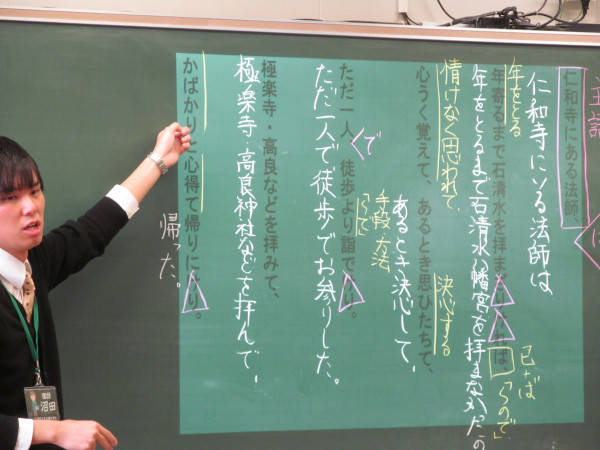 主語
は
仁和寺にある法師、
仁和寺にいる法師は
年をとる
年寄るまで石清水を拝まざりければ、
已+ば
「ので」
年をとるまで石清水八幡宮を拝まなかったの
情けなく思われて
決心する
心うく覚えて、あるとき思ひたちて、
あるとき決心して、
手段・方法
で
ただ一人、徒歩より詣でけり。
ただ一人で徒歩でお参りした。
極楽寺・高良などを拝みて、
極楽寺・高良神社などを拝んで、
かばかりと心得て帰りにけり。
帰った。
沼田